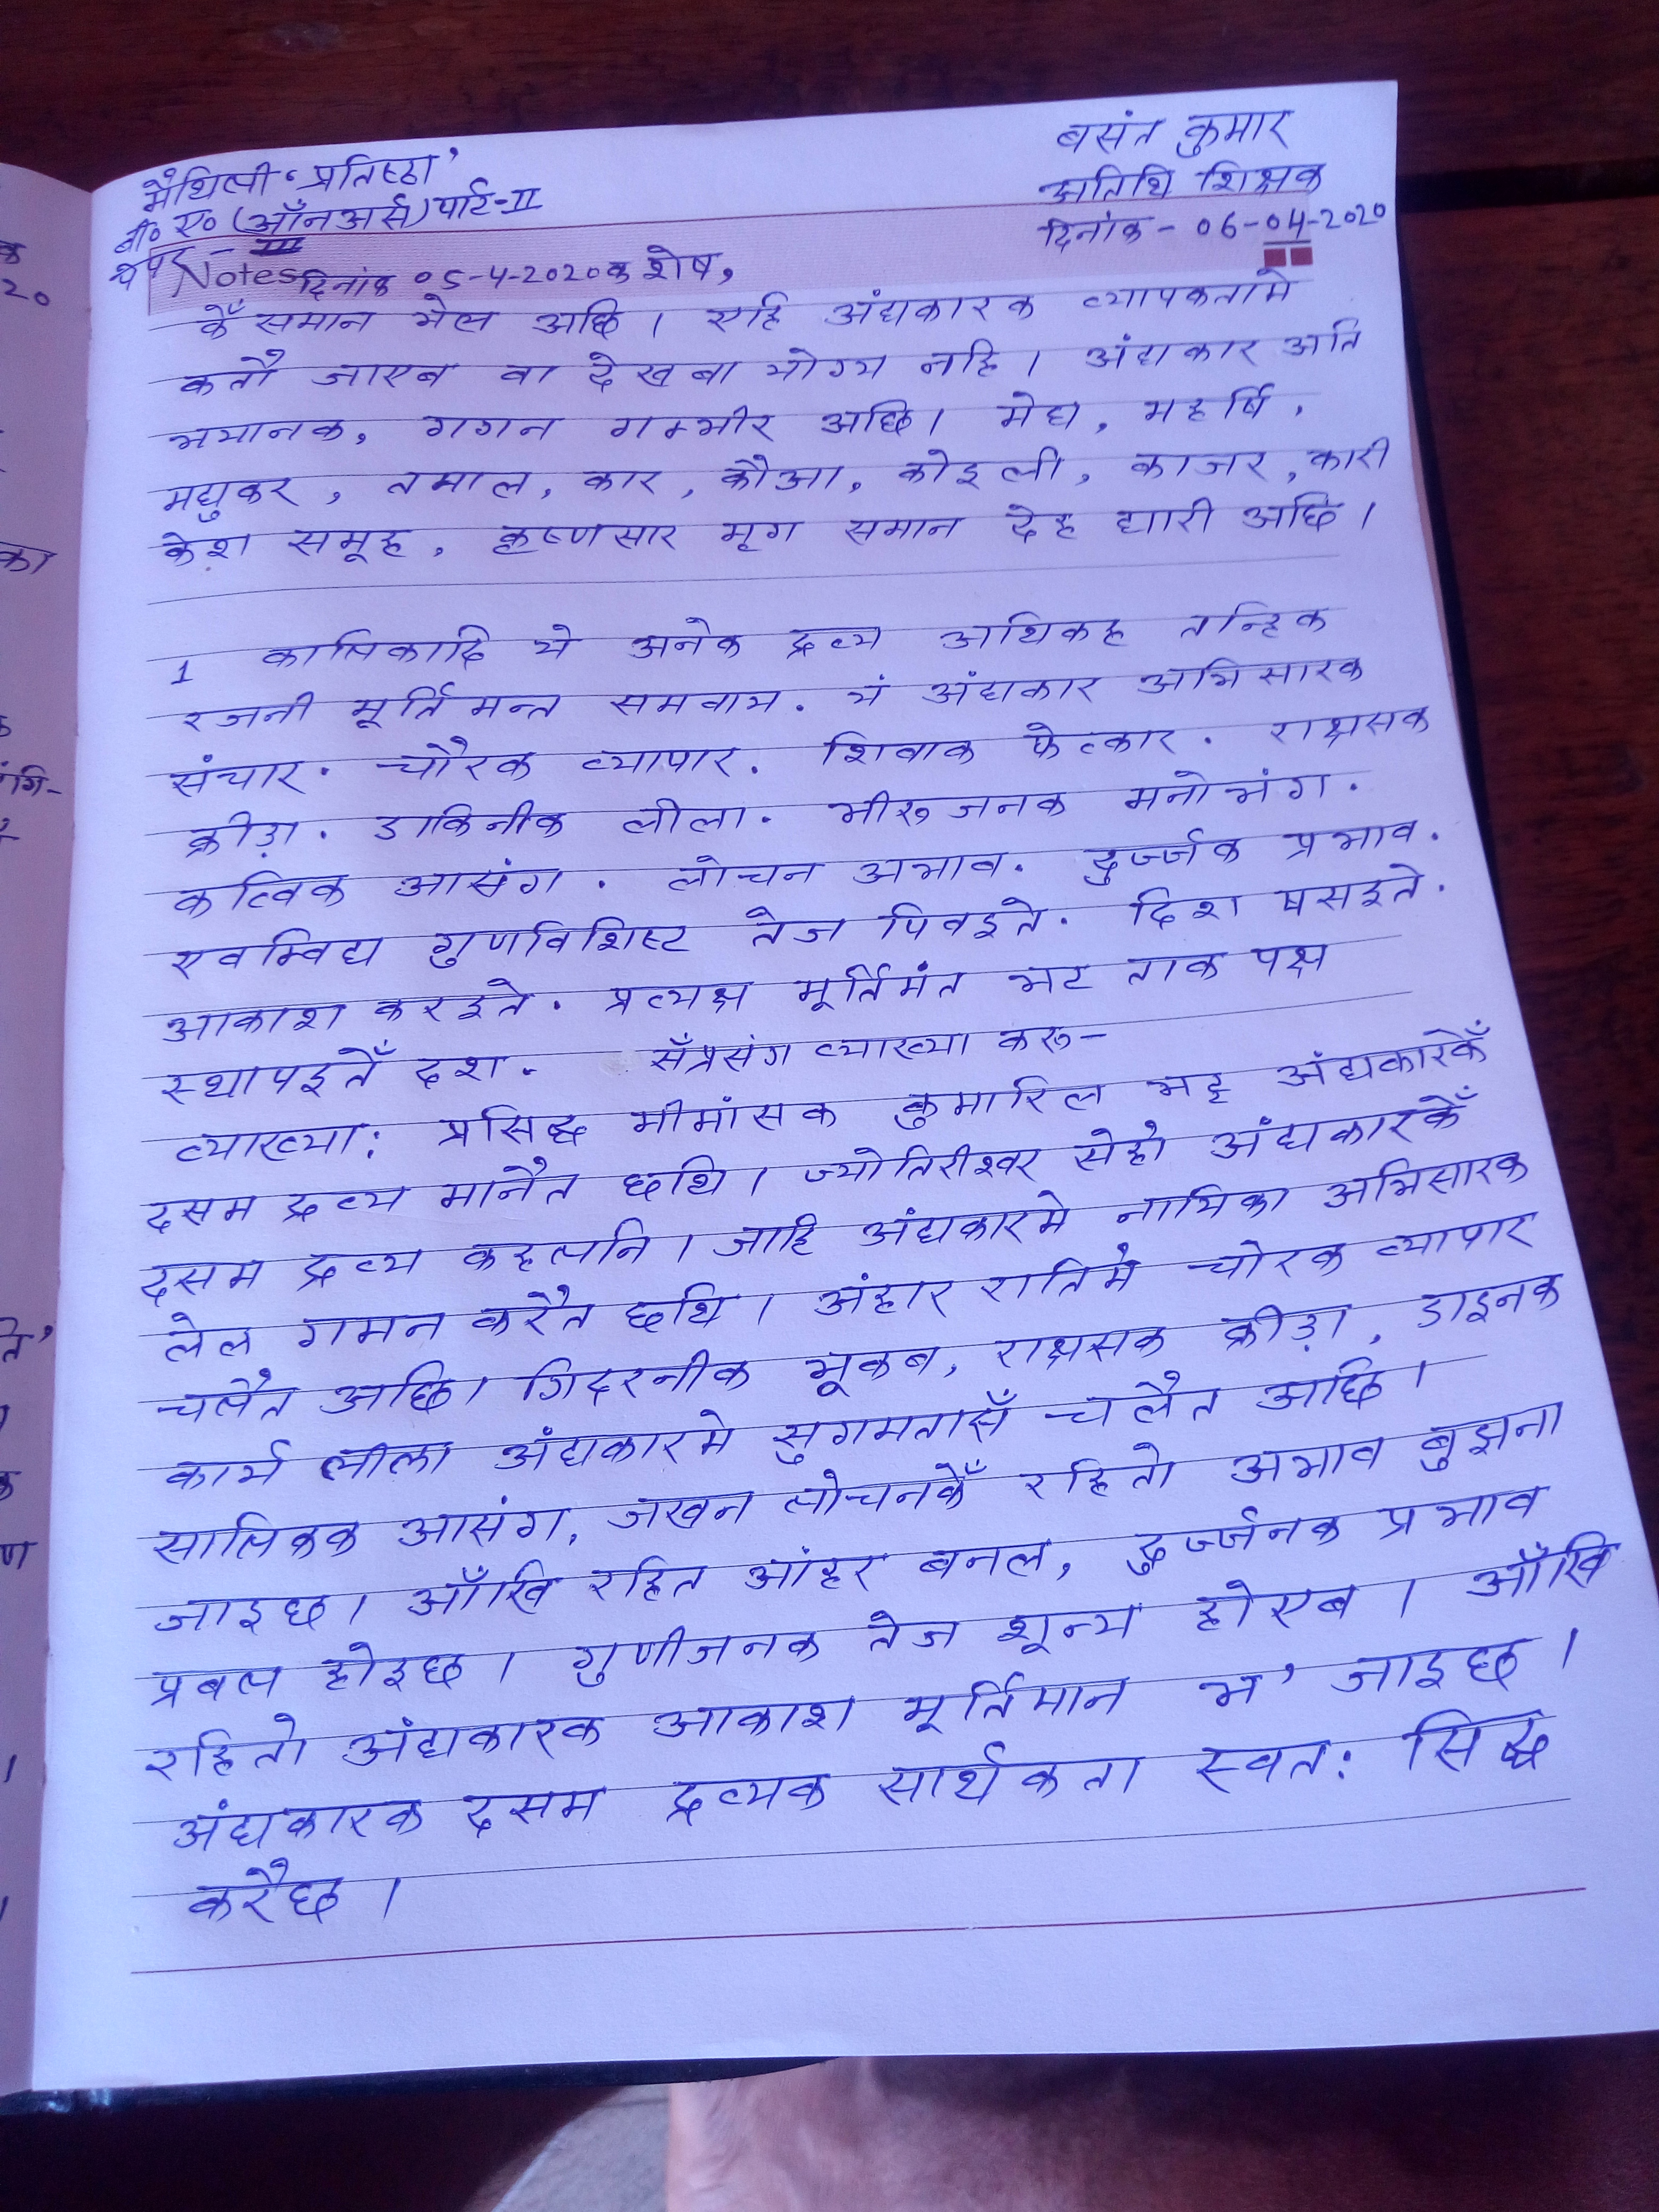 मैथिली 'प्रतिष्ठा'
बी० ए० (ऑनर्स) पार्ट-II
पत्र - III
बसंत कुमार
अतिथि शिक्षक
दिनांक - 06-04-2020
Notes दिनांक 05-4-2020क शेष,
कें समान भेल अछि । एहि अंधकारक व्यापकतामे
कतौ जाएब वा देखबा योग्य नहि । अंधकार अति
भयानक, गगन गम्भीर अछि। मेघ, महर्षि,
मधुकर, तमाल, कार, कौआ, कोइली, काजर, कारी
केश समूह, कृष्णसार मृग समान देह धारी अछि ।
1 कालिकादि ये अनेक द्रव्य अथिकह तन्हिक
रजनी मूर्तिमन्त समवाय. यं अंधकार अभिसारक
संचार. चौरक व्यापार. शिवाक फेत्कार. राक्षसक
क्रीड़ा. डाकिनीक लीला. भीरु जनक मनोभंग.
कत्विक आसंग. लोचन अभाव. दुर्ज्जक प्रभाव.
एवम्विध गुणविशिष्ट तेज पिवइते. दिश षसइते.
आकाश करइते. प्रत्यक्ष मूर्तिमंत भट ताक पक्ष
स्थापइतें दश. सँप्रसंग व्याख्या करू-
व्याख्या: प्रसिद्ध मीमांसक कुमारिल भट्ट अंधकारकेँ
दसम द्रव्य मानैत छथि । ज्योतिरीश्वर सेहो अंधकारकेँ
दसम द्रव्य कहलनि । जाहि अंधकारमे नायिका अभिसारक
लेल गमन करैत छथि । अंहार रातिमे चोरक व्यापार
चलैत अछि। गिदरनीक भूकब, राक्षसक क्रीड़ा, डाइनक
कार्य लीला अंधकारमे सुगमतासँ चलैत अछि ।
सात्विकक आसंग, जखन लोचनकेँ रहितो अभाव बुझना
जाइछ । आँखि रहित आंहर बनल, दुर्ज्जनक प्रभाव
प्रबल होइछ । गुणीजनक तेज शून्य होएब । आँखि
रहितो अंधकारक आकाश मूर्तिमान भ' जाइछ ।
अंधकारक दसम द्रव्यक सार्थकता स्वत: सिद्ध
करैछ ।